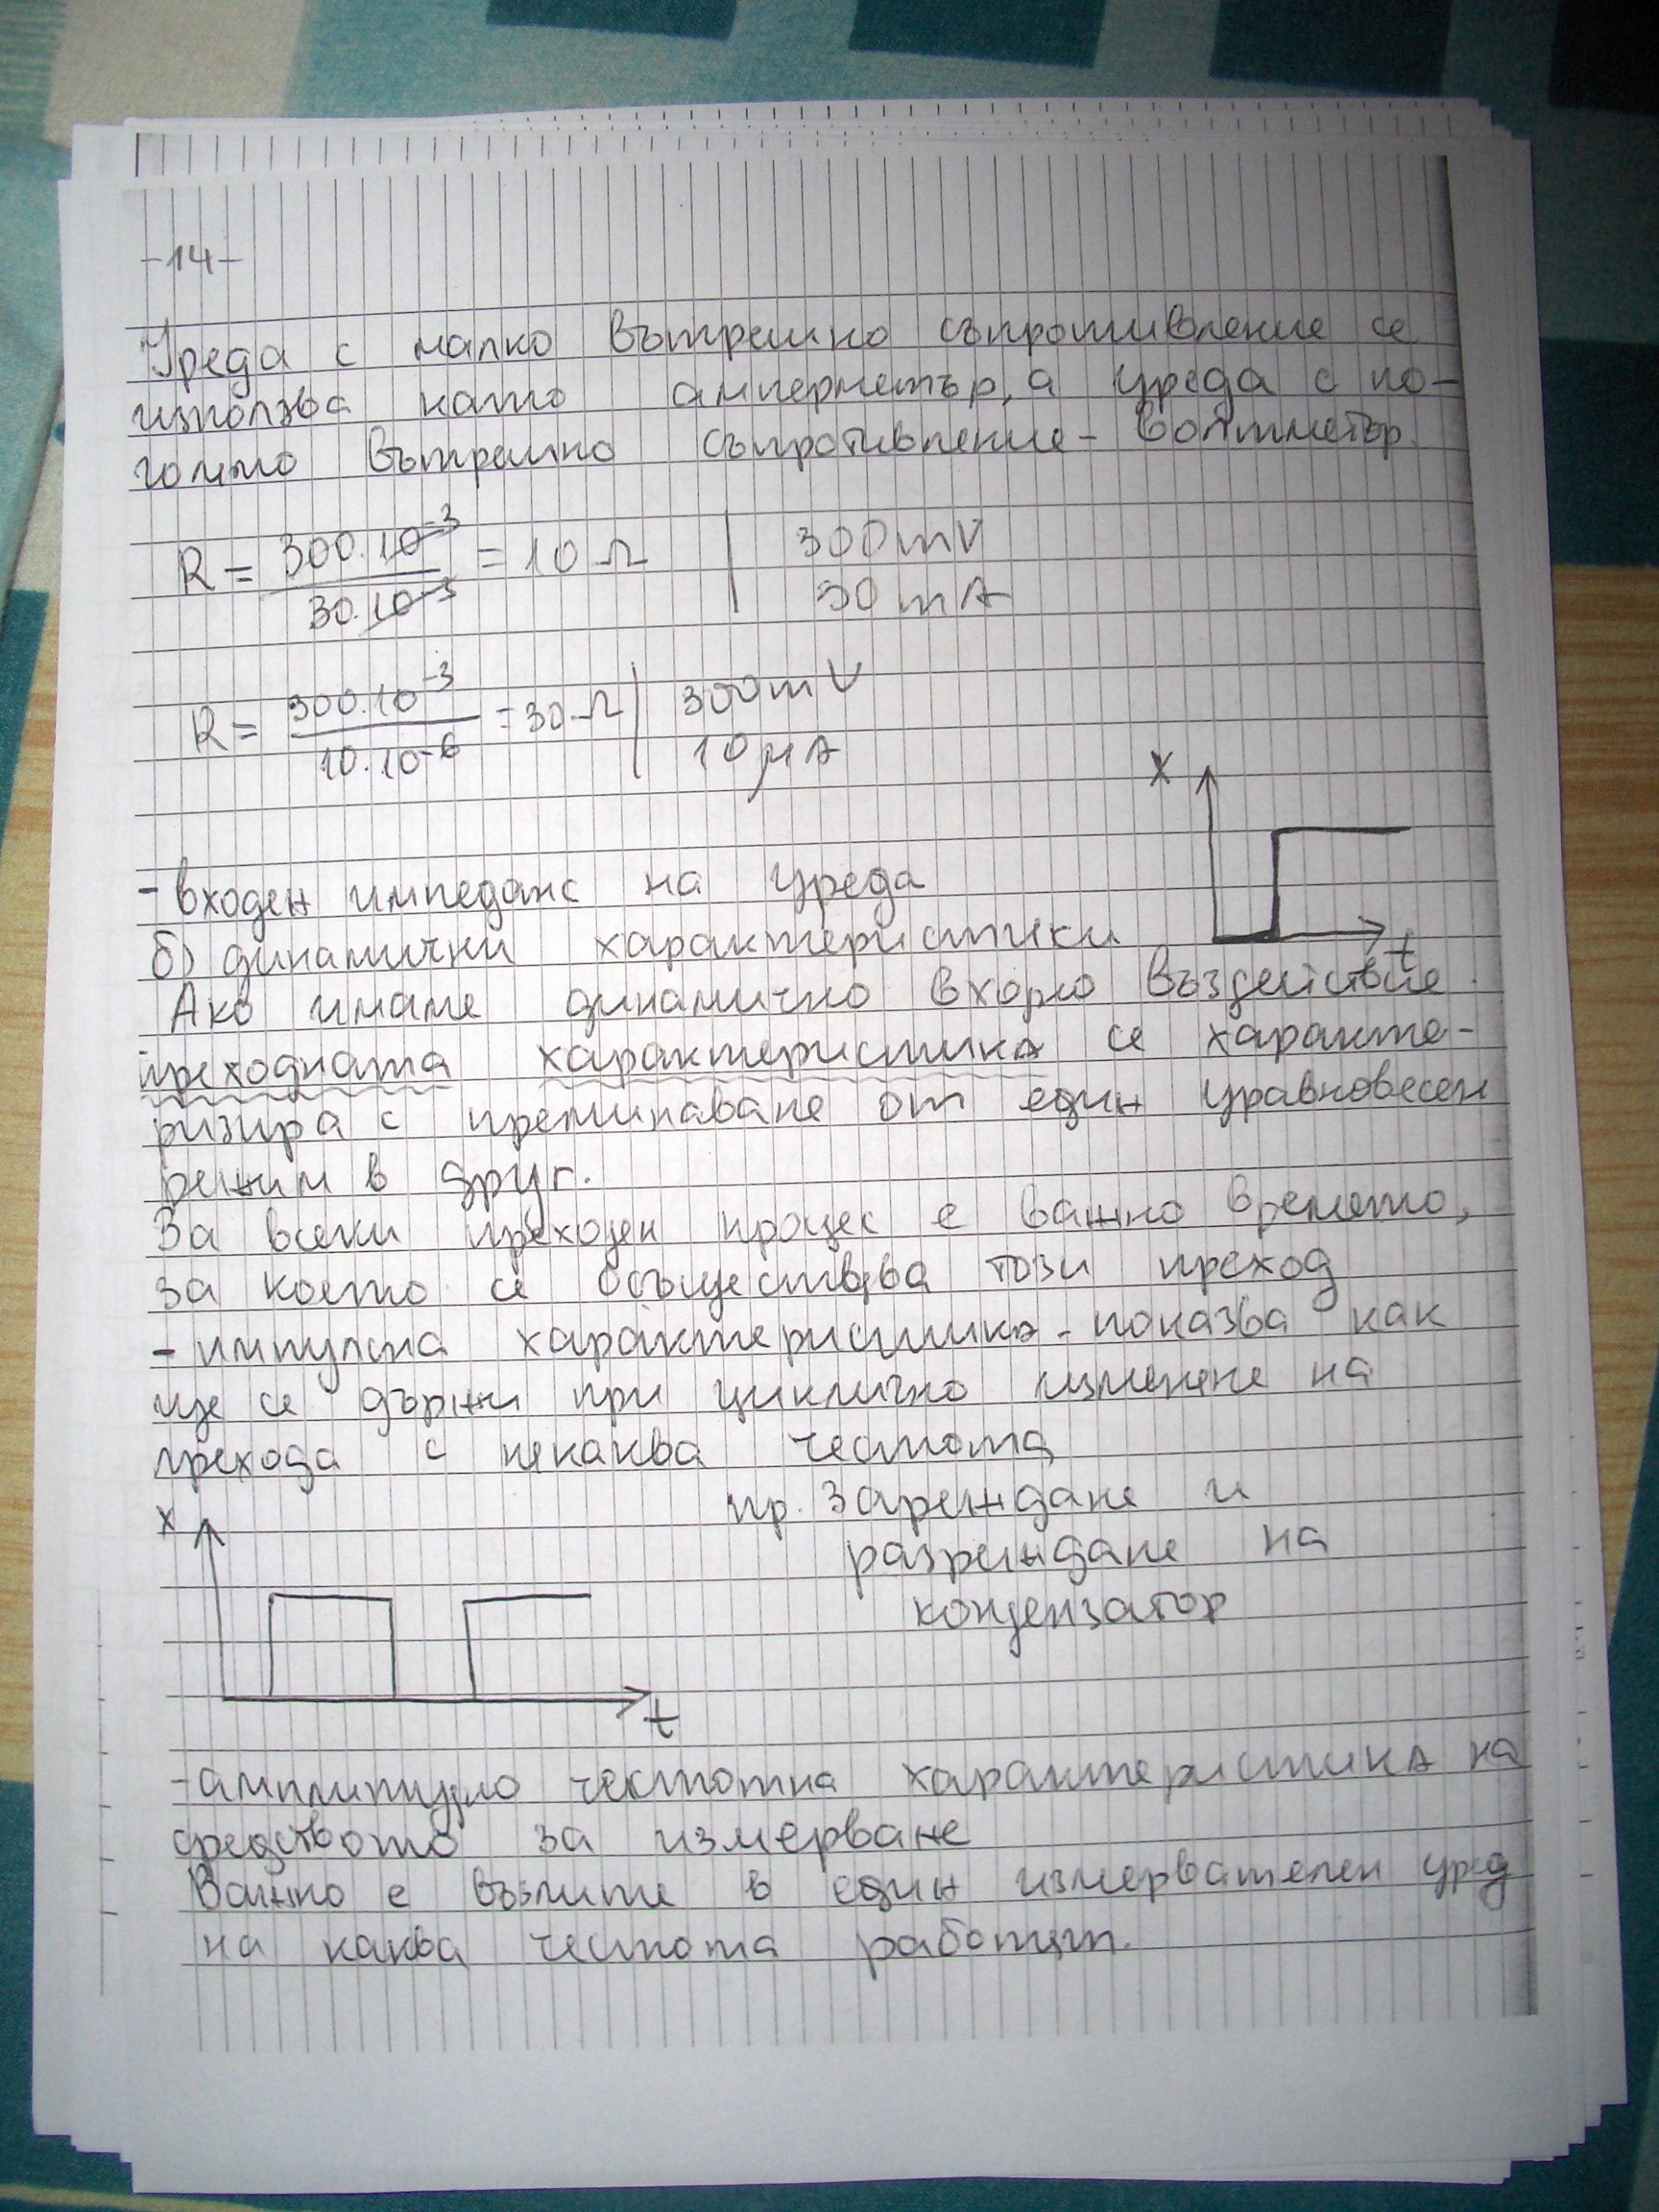 -14-
Уреда с малко вътрешно съпротивление се
използва като амперметър, а уреда с по-
голямо вътрешно съпротивление - волтметър.
R = 300.10⁻³ / 30.10⁻³ = 10 Ω | 300mV 30mA
R = 300.10⁻³ / 10.10⁻⁶ = 30 Ω | 300mV 10μA
x
t
- входен импеданс на уреда
б) динамични характеристики
Ако имаме динамично входно въздействие
преходната характеристика се характе-
ризира с преминаване от един уравновесен
режим в друг.
За всеки преходен процес е важно времето,
за което се осъществява този преход
- импулсна характеристика - показва как
ще се държи при циклично изменене на
прехода с някаква честота
пр. зареждане и
разреждане на
кондензатор
x
t
- амплитудно честотна характеристика на
средството за измерване
Важно е възлите в един измервателен уред
на каква честота работят.